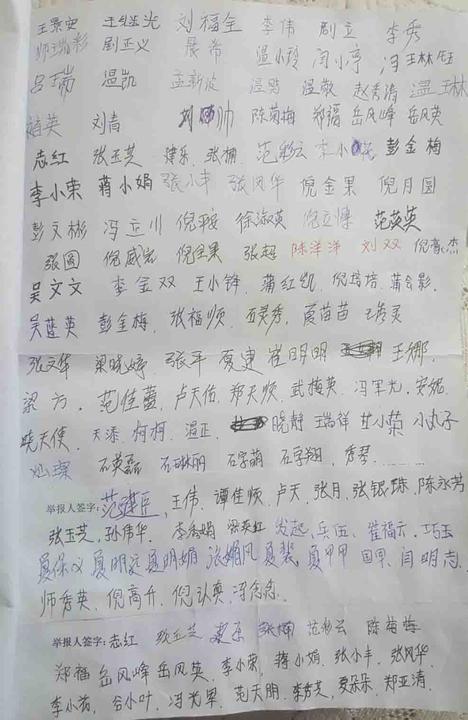 王景史 王继光 刘福全 李伟 剧立 李秀
师瑞彩 剧正义 展希 温小玲 闫小亭 冯 王林钰
吕瑞 温凯 孟新波 温鹃 温敬 赵秀清 温 王林
植英 刘青 刘 帅 陈菊梅 郑福 岳凤峰 岳凤英
志红 张玉芝 建乐 张楠 范彩云 李小 彭金梅
李小荣 蒋小娟 张小丰 张凤华 倪金果 倪月圆
彭文彬 冯立川 倪平 徐淑英 倪立博 范英英
张圆 倪威岩 倪金果 张超 陈洋洋 刘双 倪 杰
吴文文 李金双 王小锋 蒲红凯 倪培培 蒲合影
吴莲英 彭金梅 张福顺 石灵秀 夏苗苗 王秀灵
张文华 梁晓婷 张平 夏建 崔明明 王娜
梁方 范佳萱 卢天佑 郑天顺 武振英 冯军光 安妮
晓天使 天添 柯柯 温正 晓静 王瑞祥 甘小荣 小丸子
灿灿 石英磊 石琳丽 石字萌 石字翔 秀琴
举报人签字:范建臣、王伟、谭佳顺、卢天、张月、张银珠、陈永芳
张玉芝、孙伟华、李秀娟 梁爽红 发起、兵伍、崔福云、巧玉
夏保义 夏明远 夏明娟 张媚凤 夏裴、夏甲甲 国甲、闫明志
师秀英、倪高升、倪认真、冯念念
举报人签字:志红 张玉芝 建乐 张楠 范彩云 陈菊梅
郑福 岳凤峰 岳凤英、李小荣、蒋小娟、张小丰、张凤华
李小芳、谷小叶、冯光军、范天朋、李秀文、夏朵朵、郑亚清